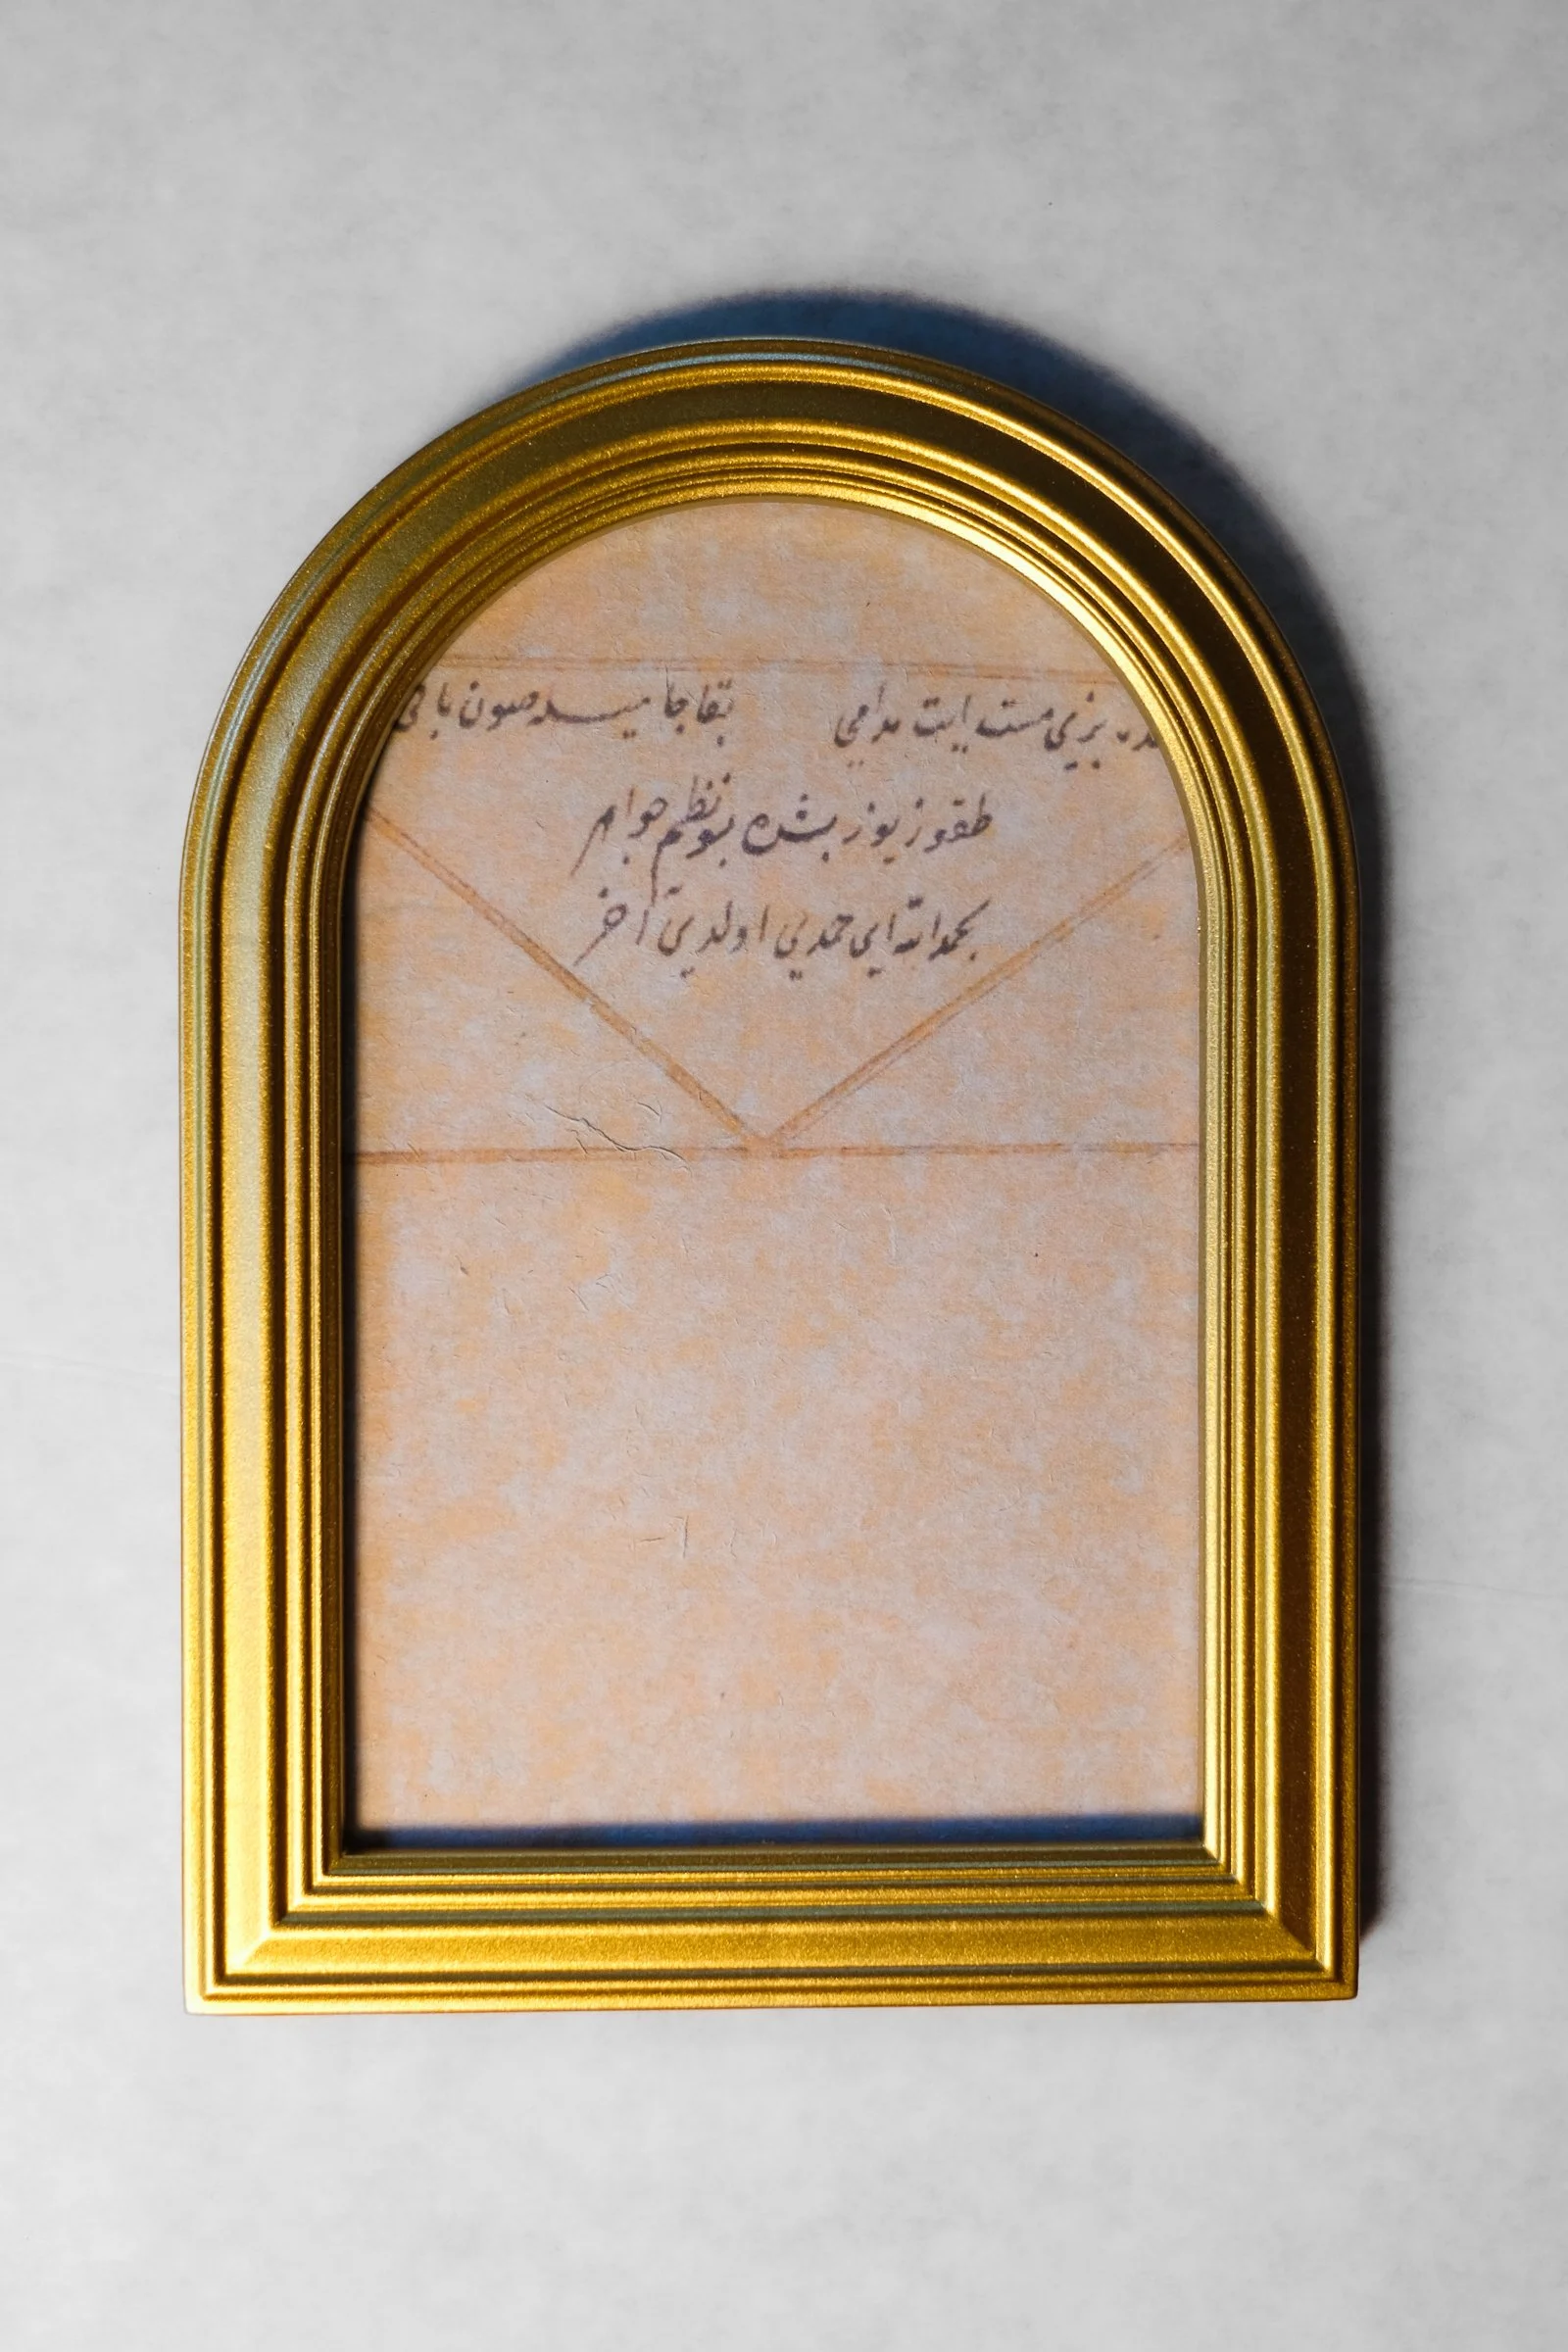 بزی مست ایت مدامی بقا جا میله صون باقی
طقوز یوز بشده بو نظم جواهر
بحمدالله ای حمدی اولدی آخر